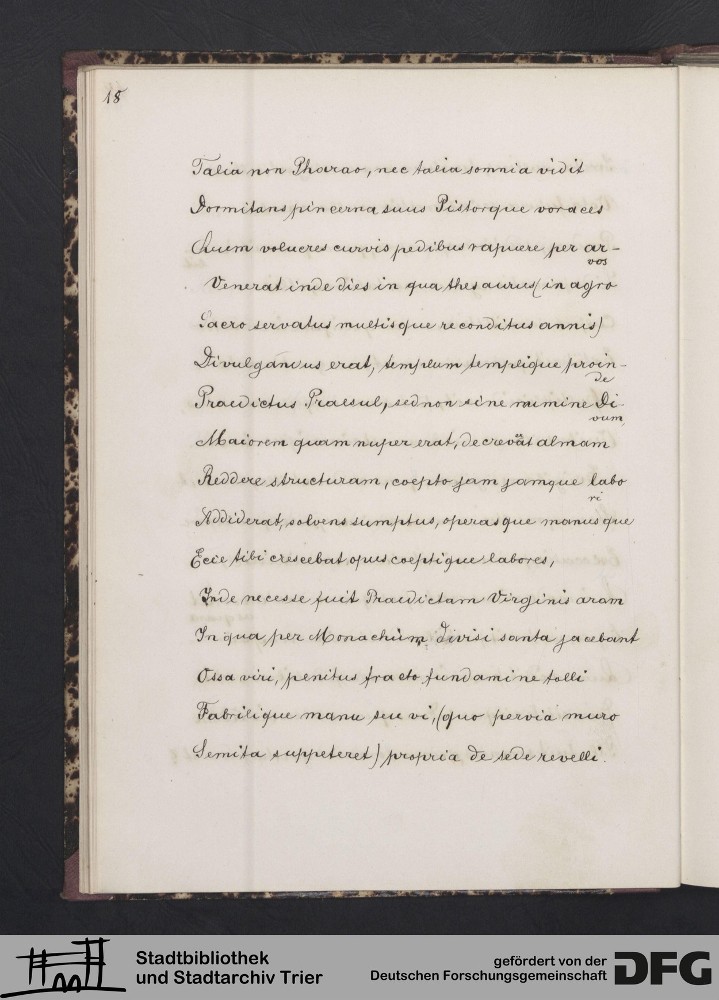 18
Talia non Pharao, nec talia somnia vidit
Dormitans pincerna suus Pistorque voraces
Quem volucres curvis pedibus rapuere per ar-
vos
Venerat inde dies in qua thesaurus (in agro
Sacro servatus multisque reconditus annis)
Divulgandus erat, templum templique proin-
de
Praedictus Praesul, sed non sine numine Di-
vum,
Maiorem quam nuper erat, decrevät almam
Reddere structuram, coepto jam jamque labo
ri
Addiderat, solvens sumptus, operasque manusque
Ecce tibi crescebat opus coeptique labores,
Inde necesse fuit Praedictam Virginis aram
In qua per Monachum divisi santa jacebant
Ossa viri, penitus fracto fundamine tolli
Fabrilique manu seu vi, (quo pervia muro
Semita suppeteret) propria de sede revelli.
Stadtbibliothek
und Stadtarchiv Trier
gefördert von der
Deutschen Forschungsgemeinschaft
DFG